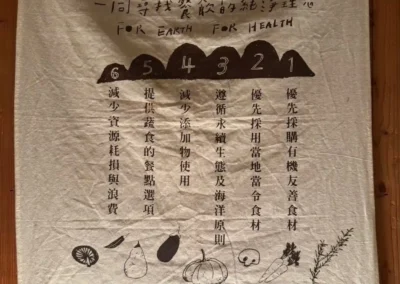 一同尋找餐飲的純淨理念
FOR EARTH FOR HEALTH
1
優先採購有機友善食材
2
優先採用當地當令食材
3
遵循永續生態及海洋原則
4
減少添加物使用
5
提供蔬食的餐點選項
6
減少資源耗損與浪費